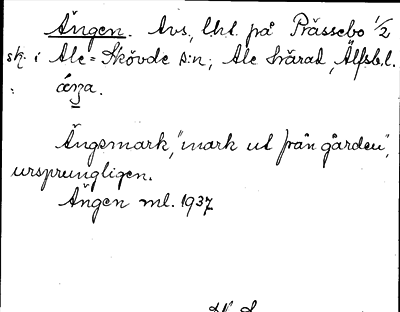 Ängen. Avs, lht. på Prässebo 1/2
sk. i Ale-Skövde s:n, Ale härad, Älfsb.l.
: ænza.
Ängsmark, "mark ut från gården",
ursprungligen.
Ängen ml. 1937